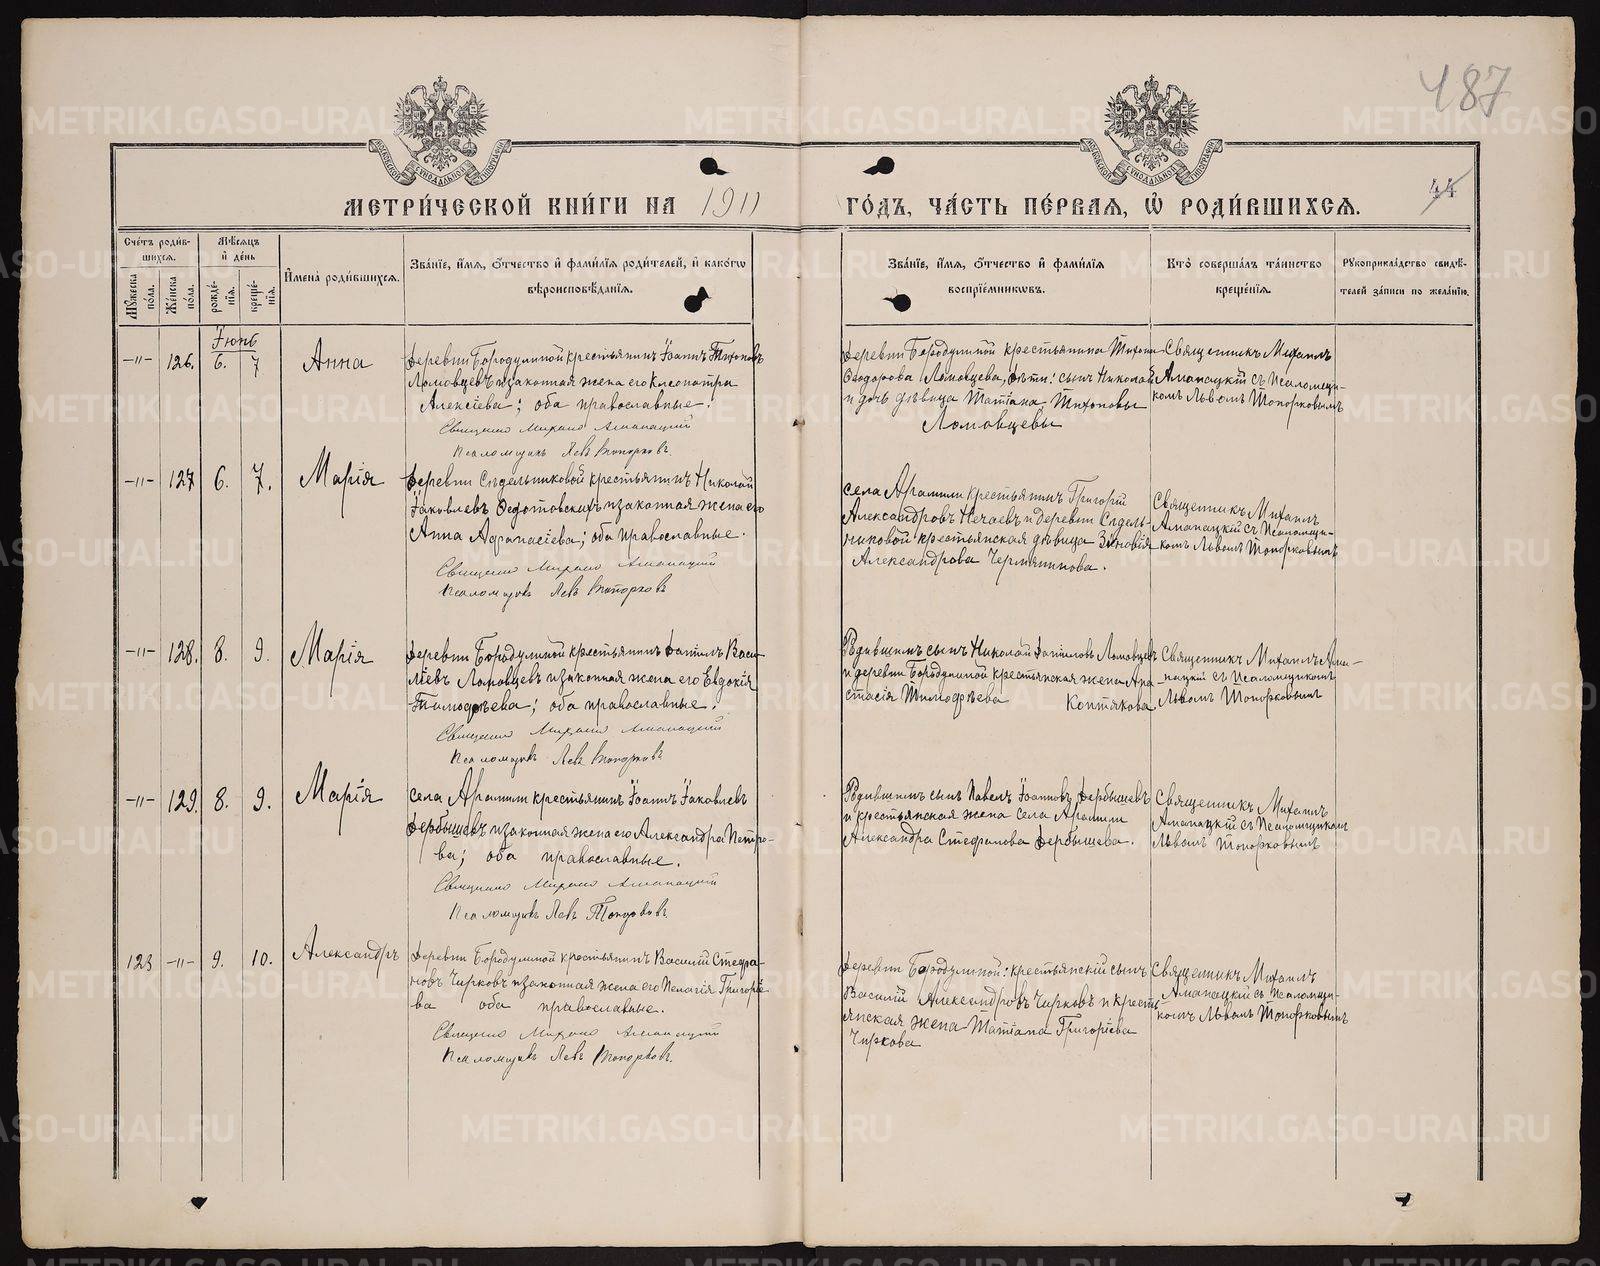 487
МОСКОВСКОЙ СУНОДАЛЬНОЙ ТИПОГРАФІИ
МОСКОВСКОЙ СУНОДАЛЬНОЙ ТИПОГРАФІИ
МЕТРИ́ЧЕСКОЙ КНИ́ГИ НА 1911 ГО́ДЪ, ЧА́СТЬ ПЕ́РВАЯ, Ѡ РОДИ́ВШИХСЯ.
44
Сче́тъ роди́в-
шихся.
Мꙋжеска по́ла.
Же́нска по́ла.
Мѣ́сяцъ
и҆ де́нь
рожде́-
нїя.
креще́-
нїя.
И҆мена̀ роди́вшихся.
Зва́нїе, и҆́мя, ѻ҆́тчество и҆ фами́лїя роди́телей, и҆ како́гѡ
вѣроисповѣ́данїя.
Зва́нїе, и҆́мя, ѻ҆́тчество и҆ фами́лїя
воспрїе́мникѡвъ.
Кто̀ соверша́лъ та́инство
креще́нїя.
Рꙋкоприкла́дство свидѣ́-
телей за́писи по жела́нїю.
Іюнь
-"- 126. 6. 7 Анна
Деревни Бородулиной крестьянинъ Іоаннъ Тихоновъ
Ломовцевъ и законная жена его Клеопатра
Алексіева; оба православные.
Священникъ Михаилъ Амапацкій
Псаломщикъ Левъ Топорковъ.
Деревни Бородулиной крестьянина Тихона
Ѳеодорова Ломовцева, дѣти: сынъ Николай
и дочь дѣвица Татіана Тихоновы
Ломовцевы
Священникъ Михаилъ
Амапацкій съ Псаломщи-
комъ Львомъ Топорковымъ
-"- 127 6. 7. Марія
Деревни Сѣдельниковой крестьянинъ Николай
Іаковлевъ Ѳедотовскихъ и законная жена его
Анна Аѳанасіева; оба православные.
Священникъ Михаилъ Амапацкій
Псаломщикъ Левъ Топорковъ
села Арамили крестьянинъ Григорій
Александровъ Нечаевъ и деревни Сѣдель-
никовой крестьянская дѣвица Зиновія
Александрова Чермянинова.
Священникъ Михаилъ
Амапацкій съ Псаломщи-
комъ Львомъ Топорковымъ
-"- 128. 8. 9. Марія
Деревни Бородулиной крестьянинъ Даніилъ Васи-
ліевъ Ломовцевъ и законная жена его Евдокія
Тимоѳеева; оба православные.
Священникъ Михаилъ Амапацкій
Псаломщикъ Левъ Топорковъ
Родившимъ сынъ Николай Даніиловъ Ломовцевъ
и деревни Бородулиной крестьянская жена Ана-
стасія Тимоѳеева Коптякова
Священникъ Михаилъ Ама-
пацкій съ Псаломщикомъ
Львомъ Топорковымъ
-"- 129. 8. 9. Марія
села Арамили крестьянинъ Іоаннъ Іаковлевъ
Дербышевъ и законная жена его Александра Петро-
ва; оба православные.
Священникъ Михаилъ Амапацкій
Псаломщикъ Левъ Топорковъ.
Родившимъ сынъ Павелъ Іоанновъ Дербышевъ
и крестьянская жена села Арамили
Александра Стефанова Дербышева.
Священникъ Михаилъ
Амапацкій съ Псаломщикомъ
Львомъ Топорковымъ
123 -"- 9. 10. Александръ
Деревни Бородулиной крестьянинъ Василій Стефа-
новъ Чирковъ и законная жена его Пелагія Григоріе-
ва оба православные.
Священникъ Михаилъ Амапацкій
Псаломщикъ Левъ Топорковъ.
Деревни Бородулиной: крестьянскій сынъ
Василій Александровъ Чирковъ и кресть-
янская жена Татіана Григоріева
Чиркова
Священникъ Михаилъ
Амапацкій съ Псаломщи-
комъ Львомъ Топорковымъ
METRIKI.GASO-URAL.RU